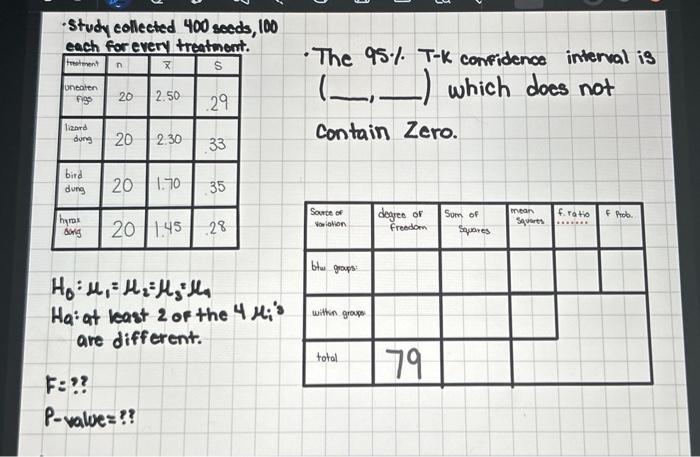 ·Study collected 400 seeds, 100
each for every treatment.
treatment n x̄ S
uneaten
figs 20 2.50 .29
lizard
dung 20 2.30 .33
bird
dung 20 1.70 .35
hyrax
dung 20 1.45 .28
H₀: μ₁=μ₂=μ₃=μ₄
Ha: at least 2 of the 4 μᵢ's
are different.
F=??
P-value=??
·The 95% T-K confidence interval is
(__,__) which does not
Contain Zero.
Source of
Variation
degree of
freedom
Sum of
Squares
mean
Squares
f. ratio
f Prob.
btw groups:
within groups
total 79